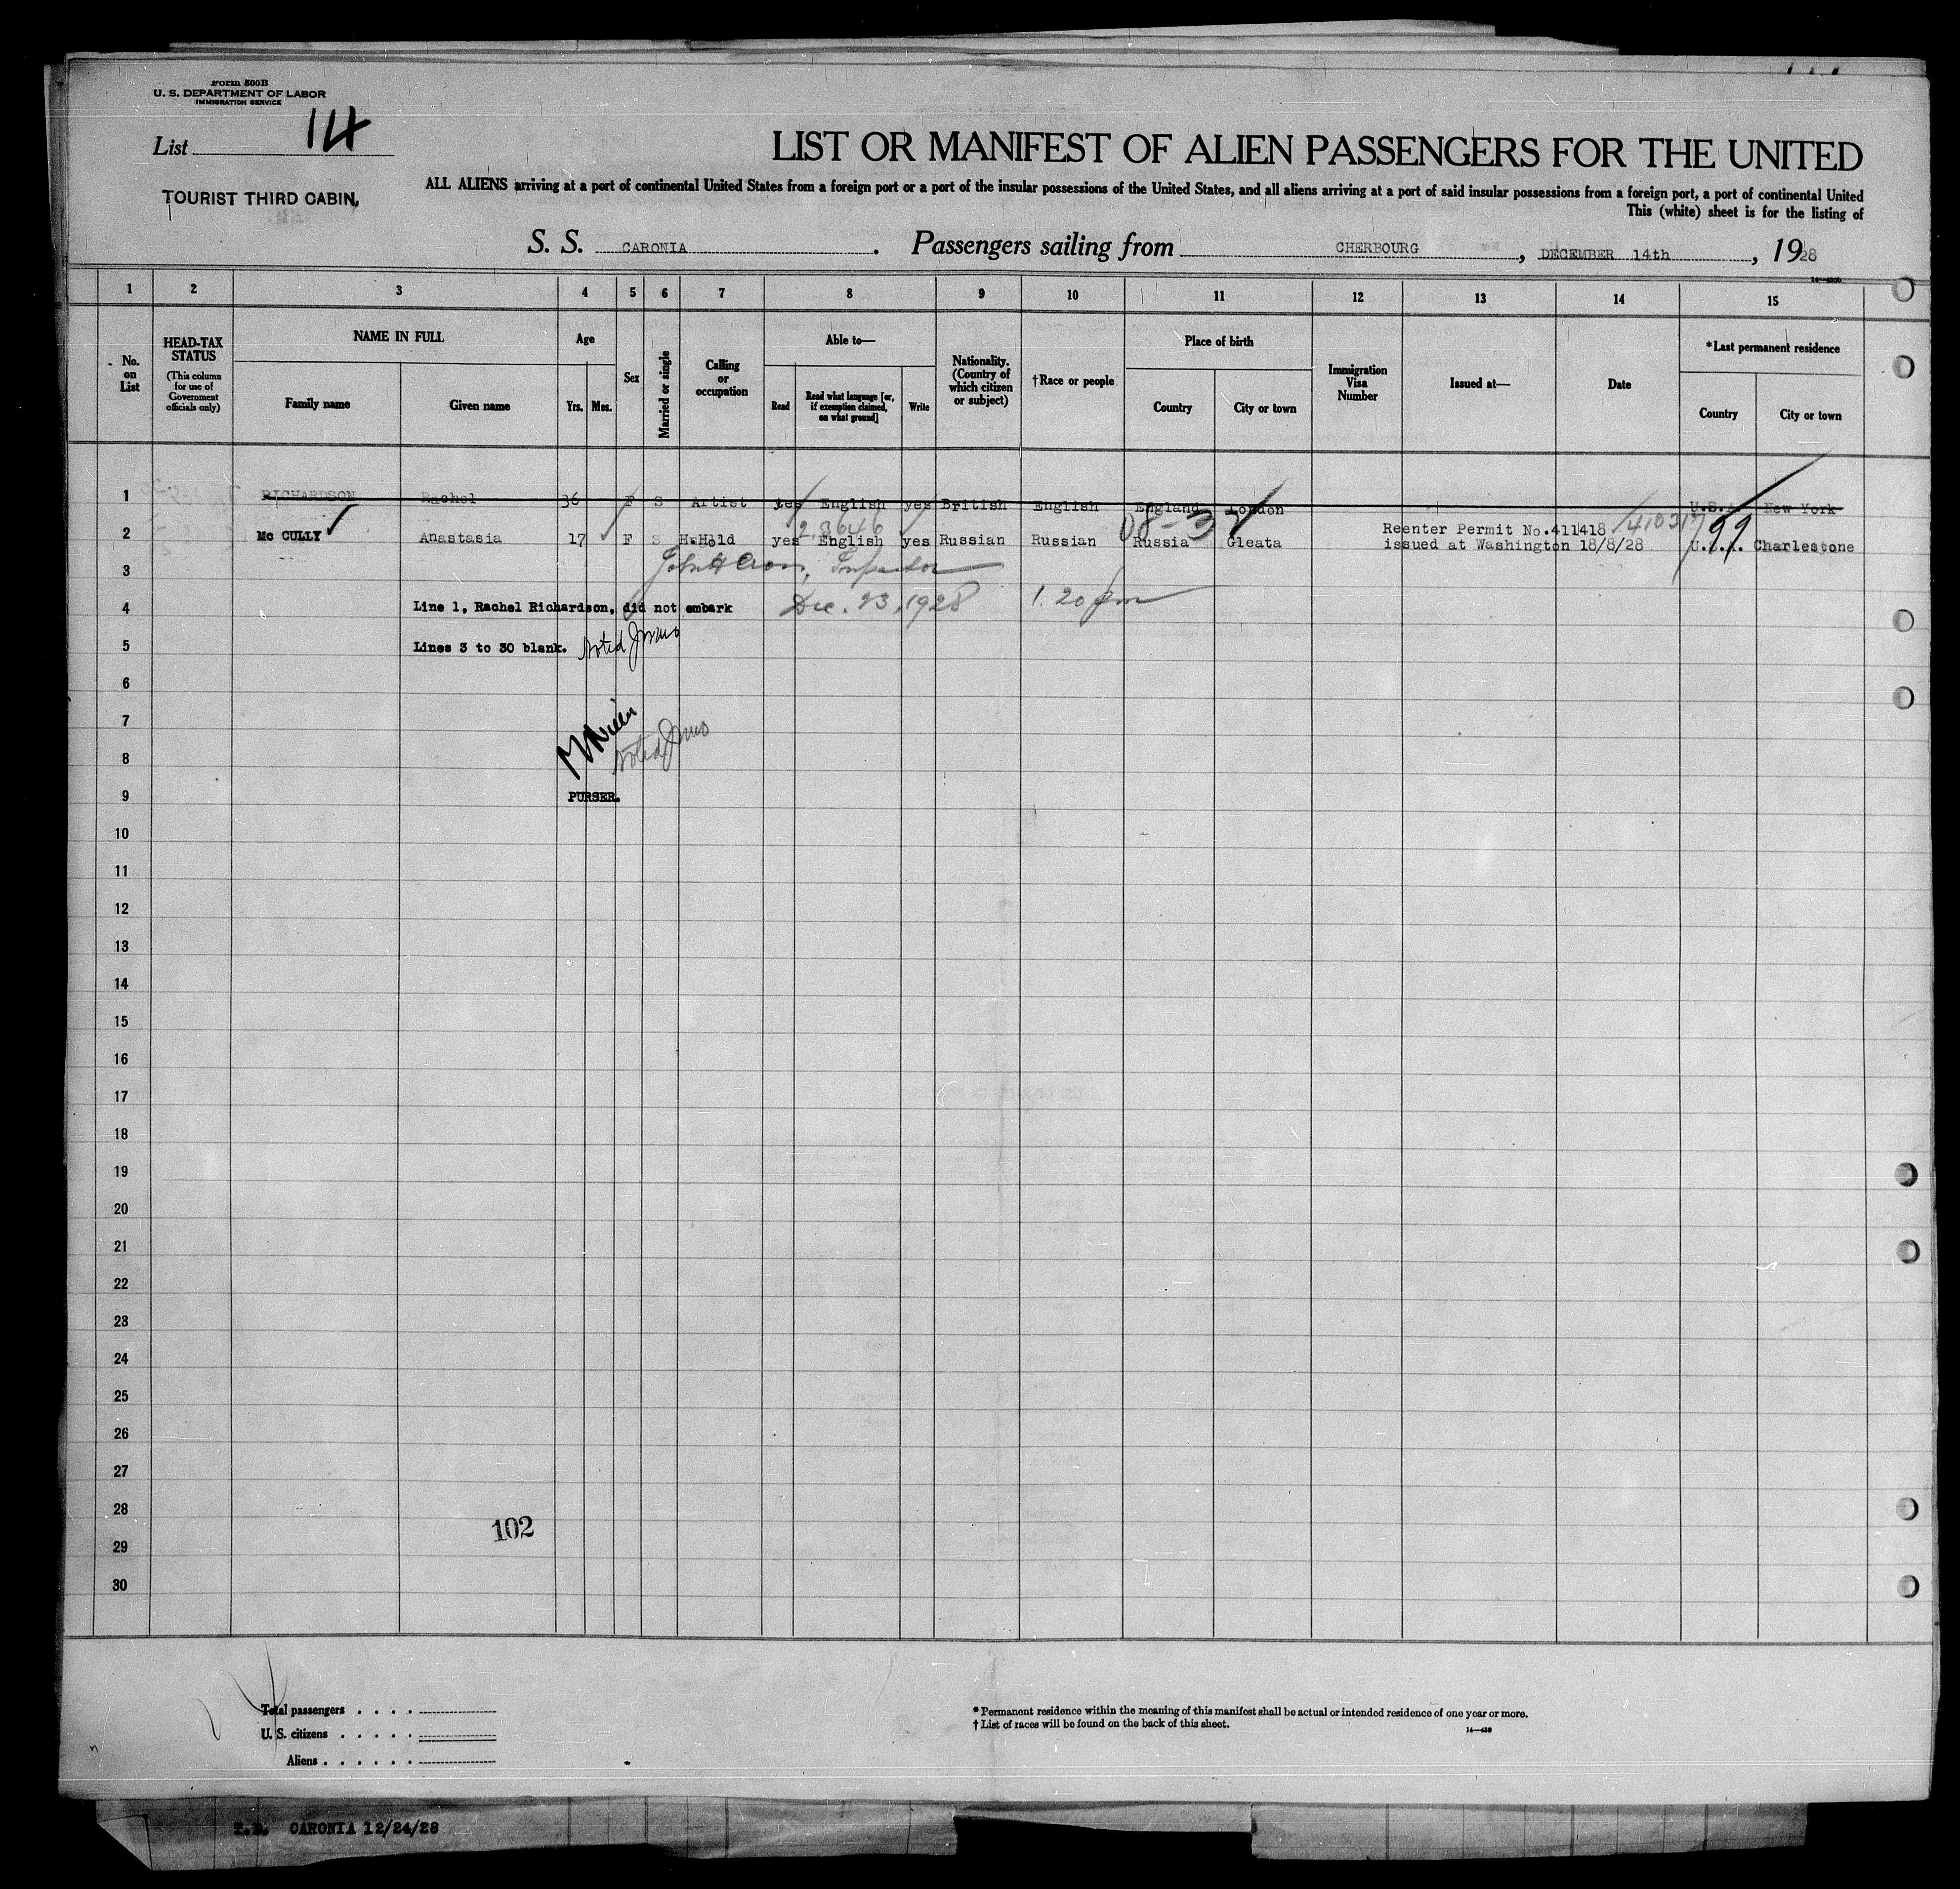 Form 500B
U. S. DEPARTMENT OF LABOR
IMMIGRATION SERVICE
List 14
LIST OR MANIFEST OF ALIEN PASSENGERS FOR THE UNITED
TOURIST THIRD CABIN,
ALL ALIENS arriving at a port of continental United States from a foreign port or a port of the insular possessions of the United States, and all aliens arriving at a port of said insular possessions from a foreign port, a port of continental United
This (white) sheet is for the listing of
S. S. CARONIA. Passengers sailing from CHERBOURG, DECEMBER 14th, 1928
1 2 3 4 5 6 7 8 9 10 11 12 13 14 15
No. on List
HEAD-TAX STATUS
(This column for use of Government officials only)
NAME IN FULL
Family name Given name
Age
Yrs. Mos.
Sex
Married or single
Calling or occupation
Able to—
Read
Read what language [or, if exemption claimed, on what ground]
Write
Nationality. (Country of which citizen or subject)
†Race or people
Place of birth
Country City or town
Immigration Visa Number
Issued at—
Date
*Last permanent residence
Country City or town
1 RICHARDSON Rachel 36 F S Artist yes English yes British English England London U.S.A. New York
2 Mc CULLY Anastasia 17 F S H.Hold yes English yes Russian Russian Russia Gleata Reenter Permit No.411418 issued at Washington 18/8/28 U.S.A. Charlestone
3
4 Line 1, Rachel Richardson, did not embark Dec. 23, 1928 1.20 pm
5 Lines 3 to 30 blank. Noted
6
7
8 Noted
9 PURSER.
10
11
12
13
14
15
16
17
18
19
20
21
22
23
24
25
26
27
28
102
29
30
Total passengers . . . .
U. S. citizens . . . . .
Aliens . . . . . .
*Permanent residence within the meaning of this manifest shall be actual or intended residence of one year or more.
†List of races will be found on the back of this sheet.
14—430
CARONIA 12/24/28